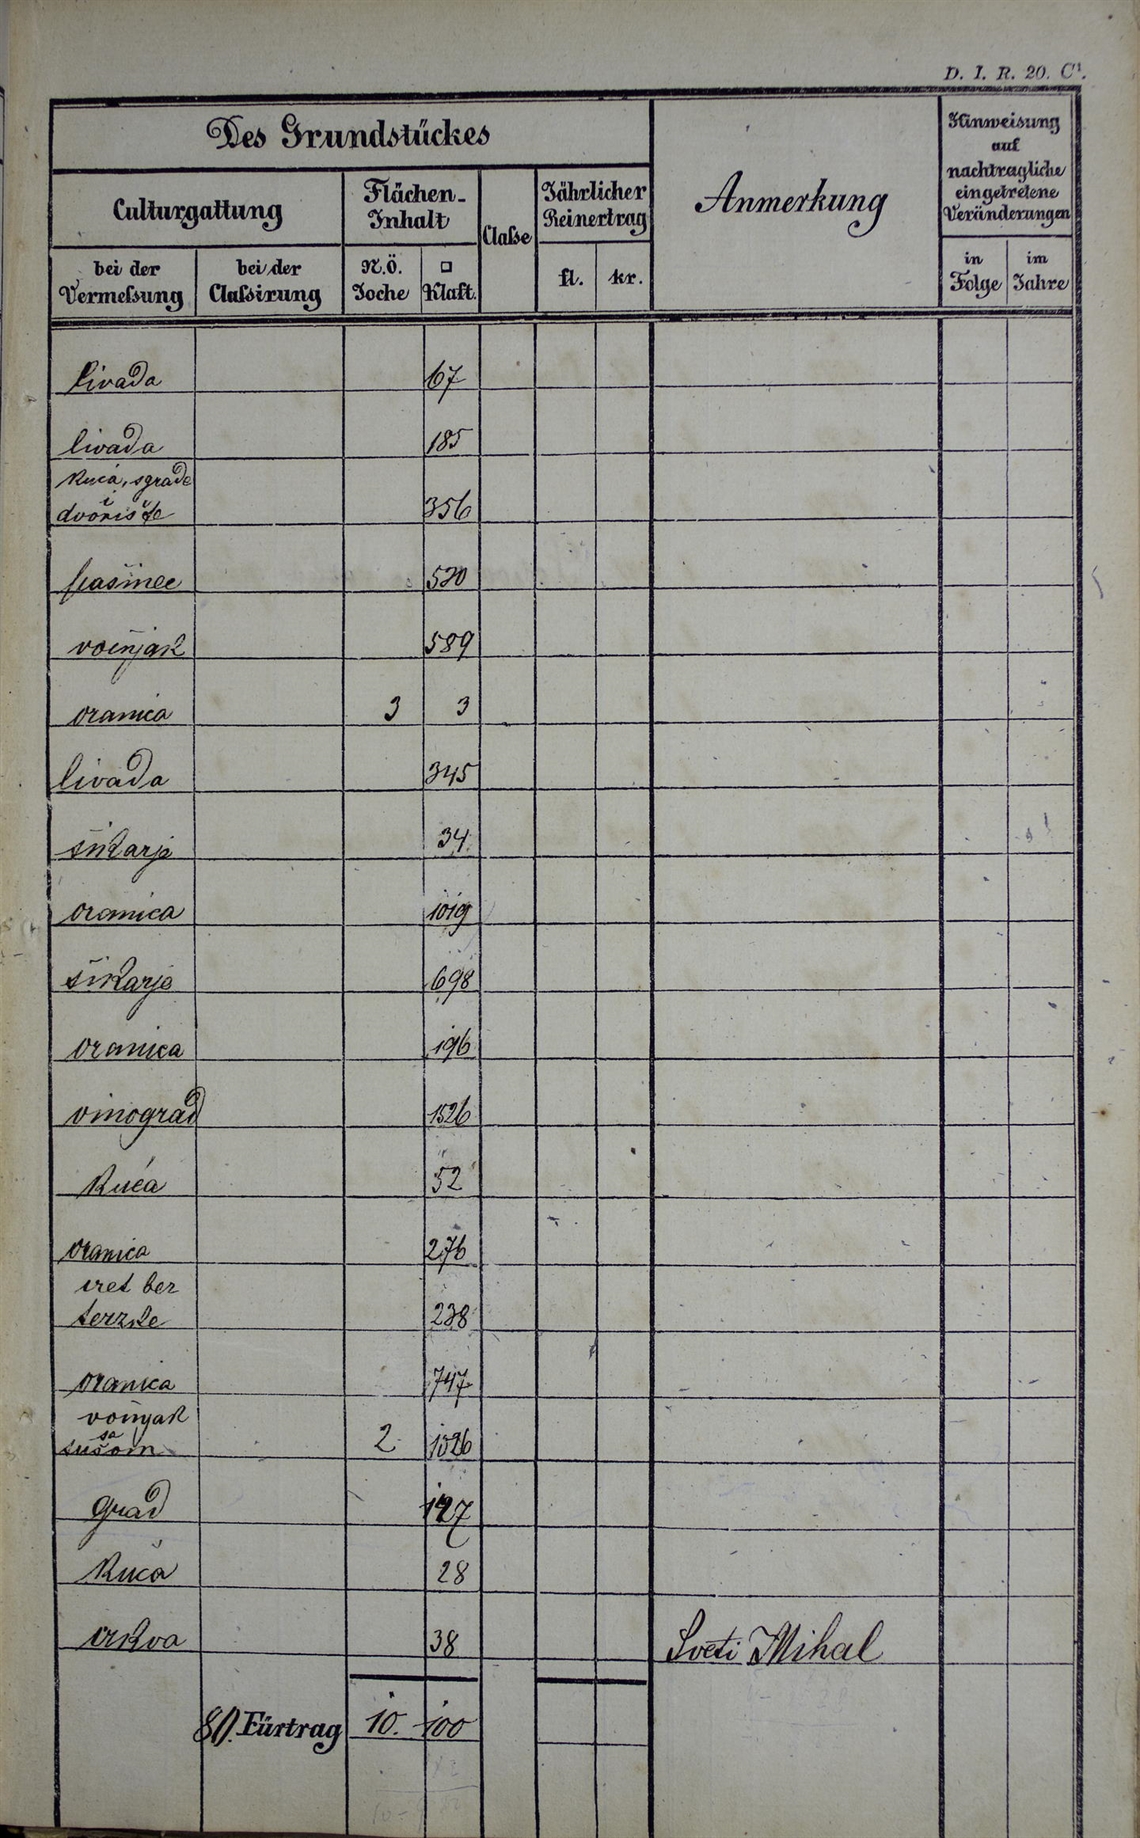 D. I. R. 20. C¹.
Des Grundstückes
Anmerkung
Hinweisung
auf
nachtragliche
eingetretene
Veränderungen
Culturgattung
Flächen-
Inhalt
Claſse
Jährlicher
Reinertrag
bei der
Vermeſsung
bei der
Claſsirung
N.Ö.
Joche
□
Klaft.
fl.
kr.
in
Folge
im
Jahre
livada 67
livada 185
kuća, sgrade
i
dvorište 356
pašinec 520
voćnjak 589
oranica 3 3
livada 345
šikarje 34
oranica 1019
šikarje 698
oranica 196
vinograd 1526
kuća 52
oranica 276
cret bez
terzke 238
oranica 747
voćnjak
sa
sušom 2 1526
grad 127
kuća 28
crkva 38 Sveti Mihal
80. Fürtrag 10. 100